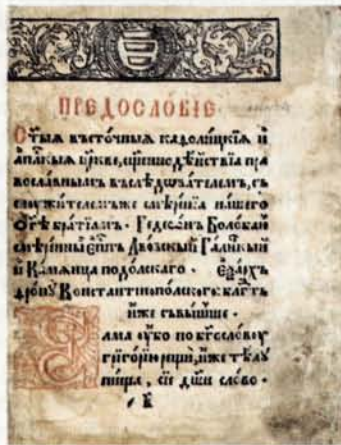 ПРЕДОСЛО́ВІЕ
Ст҃ыѧ въсто́чныѧ каѳоли́цкїѧ и҆
а҆пл҃кыѧ цр҃кве, сщ҃еннодѣ́йствїа пра
восла́внымъ въслѣ́дователемъ, съ
слꙋжи́телемъ же смѣре́нїа на́шего
бра́тїамъ · Гедео́нъ Болоба́н
смѣре́нный еп҃пъ Льво́вскый Га́лицкый
и҆ Ка́мянца подо́лскаго · Е҆ѯа́рхъ
Константїнопо́лскогꙋ
и҆́же съвы́шше ·
по бг҃осло́вꙋ
григо́рїю рещи, и҆́же тѣ́лꙋ
пи́ща, сїе дш҃и сло́во ·